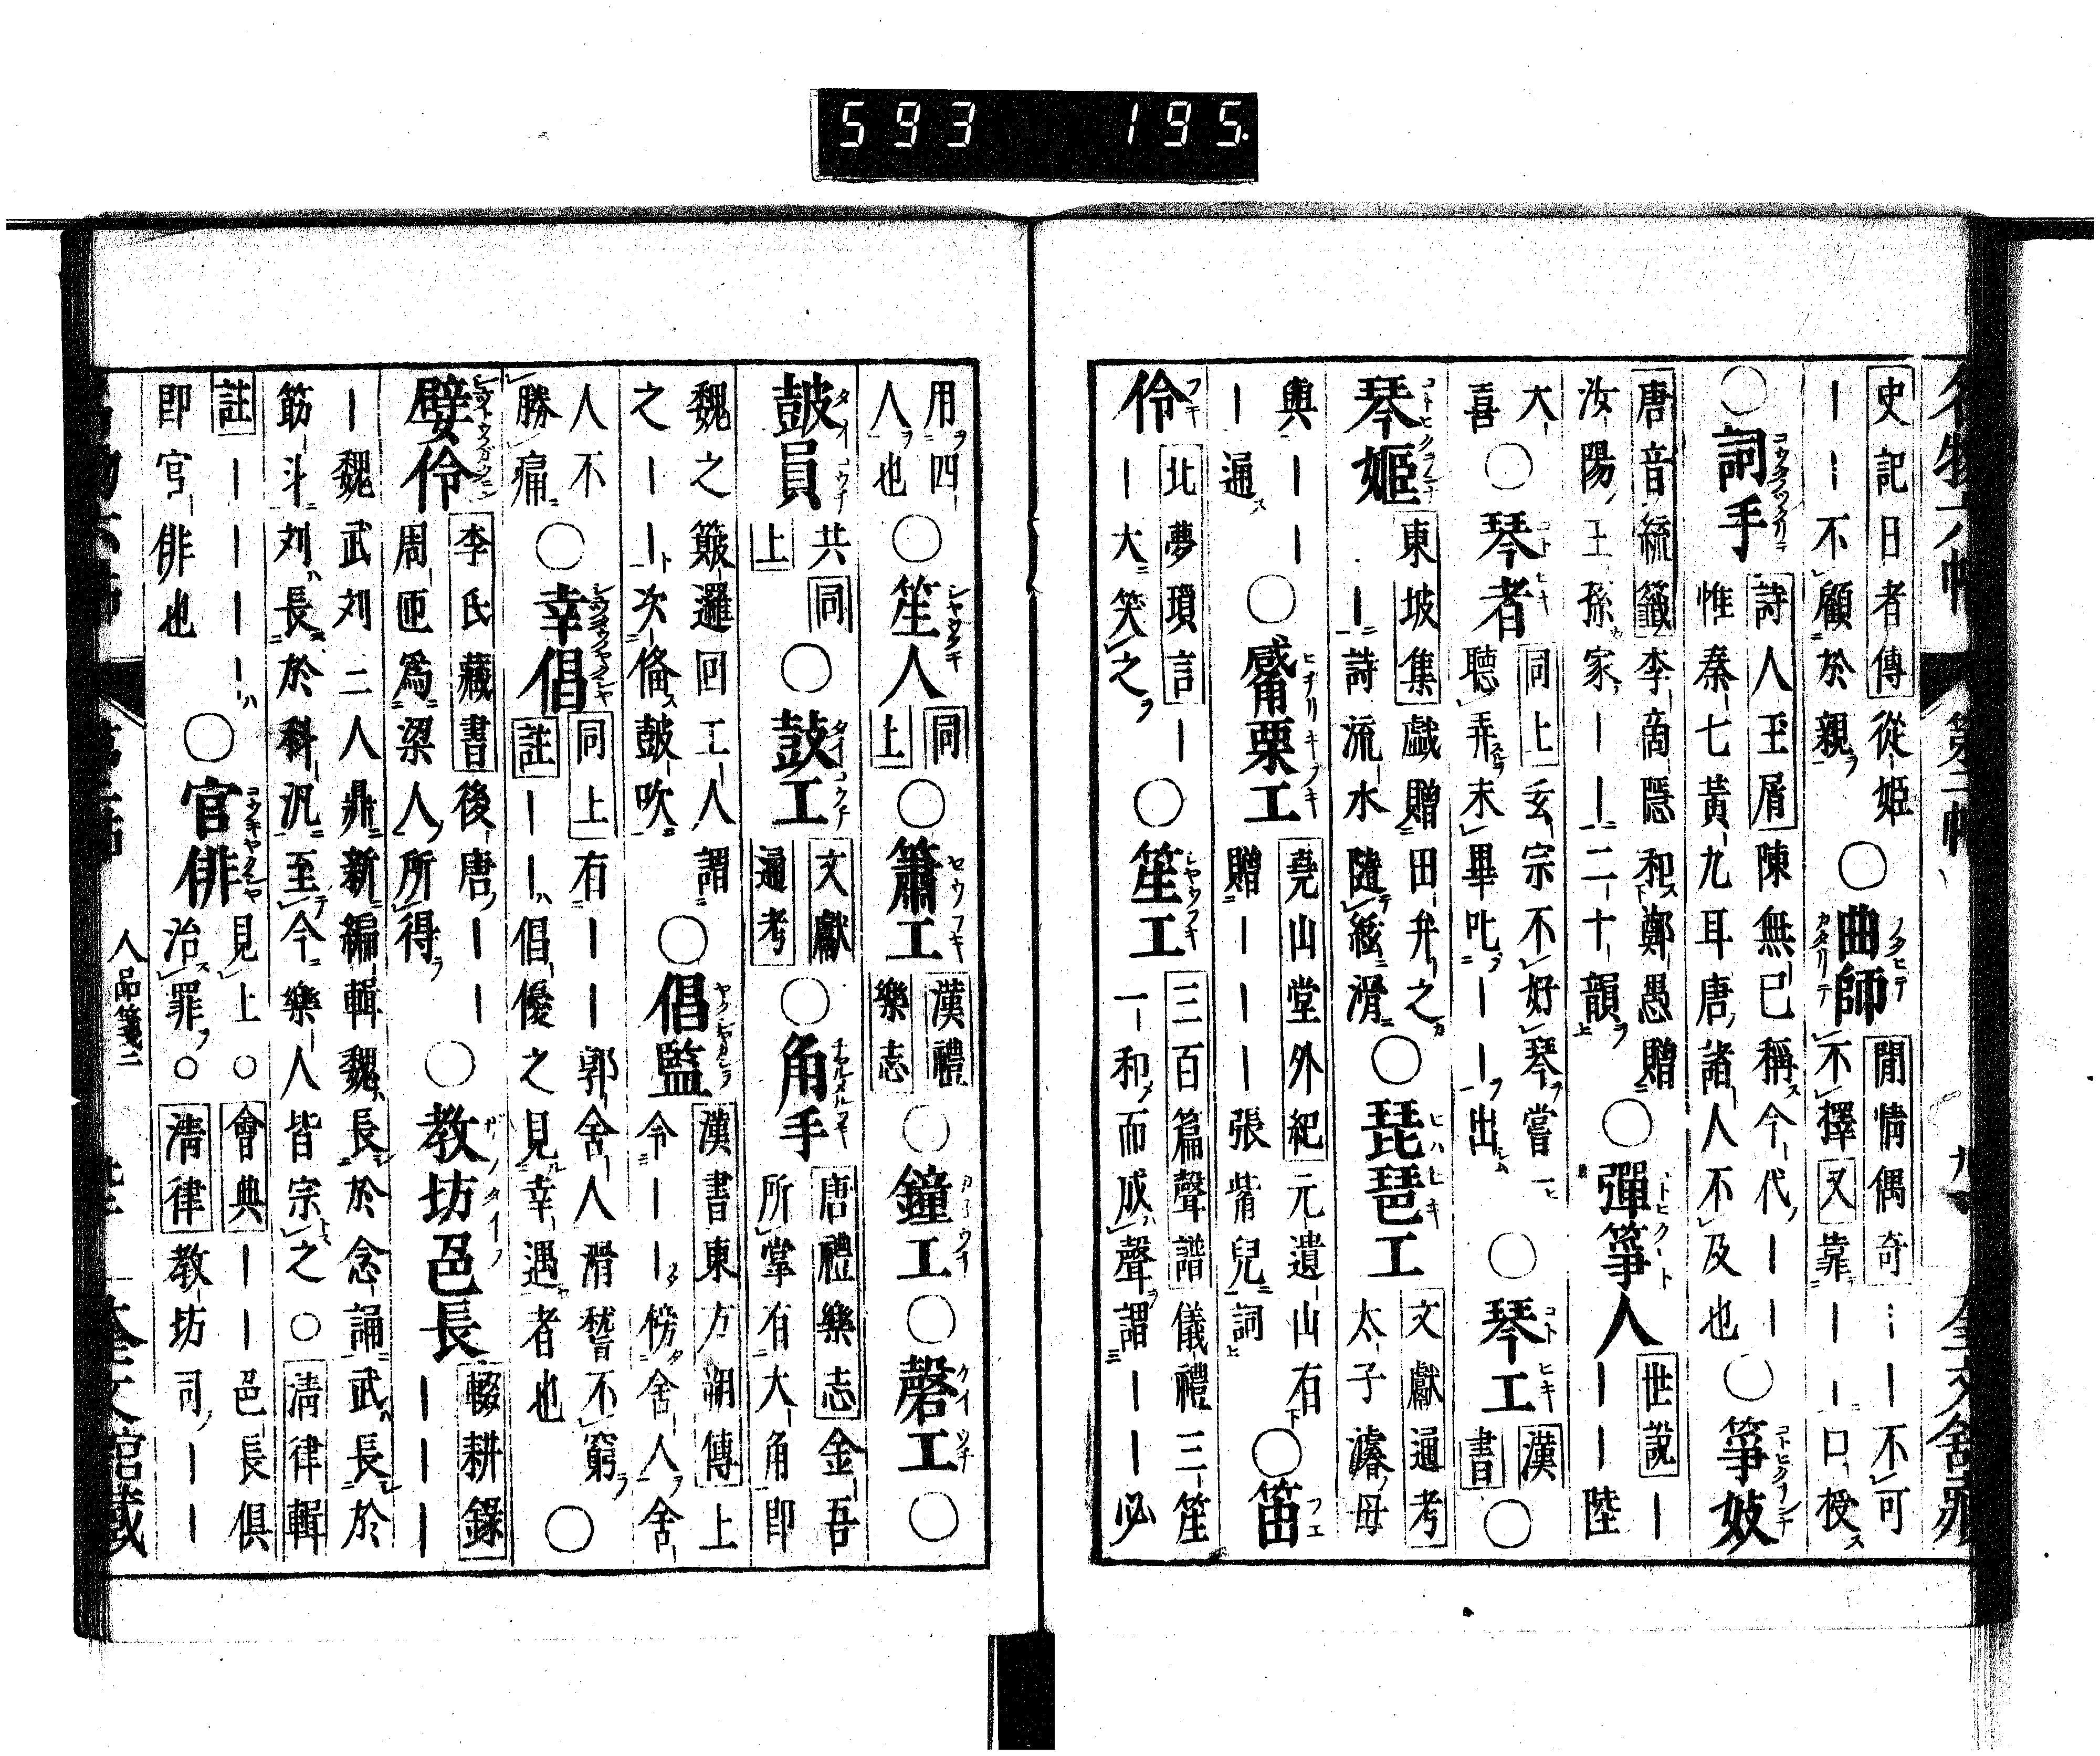 593 195.
史記日者傳 從姬
――不顧於親
○曲師 ノタヒテ カタリテ
閒情偶奇 ――不可
不擇又靠――口授
○詞手 コウタツクリテ
詩人玉屑 陳無已稱今代――
惟秦七黃九耳唐諸人不及也
○箏妓 コトヒクヲンナ
唐音統籤 李商隱和鄭愚贈
汝陽王孫家――二十韻上
○彈箏人
世說 ―
――陸
大
喜
○琴者 コトヒキ
同上 玄宗不好琴嘗一
聽弄未畢叱――出
○琴工 コトヒキ
漢
書
○
琴姬
東坡集 戲贈田弁之
―詩流水隨絃滑
○琵琶工 ヒハヒキ
文獻通考
太子濬母
輿――
―通
○觱栗工 ヒチリキフキ
堯山堂外紀 元遺山有
贈――――張觜兒詞
○笛 フエ
伶 フキ
北夢瑣言 ―
―大笑之
○笙工 シヤウフキ
三百篇聲譜 儀禮三笙
一和而成聲謂――必
用四
人也
○笙人
同
上
○簫工 セウフキ
漢禮
樂志
○鐘工
○磬工
○
鼓員
共同
上
○鼓工
文獻
通考
○角手
唐禮樂志 金吾
所掌有大角即
魏之簸邏回工人謂
之――次俻鼓吹
○倡監
漢書東方朔傳 上
令――榜舍人舍
人不
勝痛
○幸倡
同上 有――郭舍人滑稽不窮
註 ――倡優之見幸遇者也
○
嬖伶
李氏藏書 後唐――
周匝爲梁人所得
○教坊邑長
輟耕錄
―――
―魏武刘二人鼎新編輯魏長於念誦武長於
筋斗刘長於科汎至今樂人皆宗之○清律輯
註 ――――
即官俳也
○官俳
見上○會典 ――邑長俱
治罪○清律 教坊司――
人品箋二